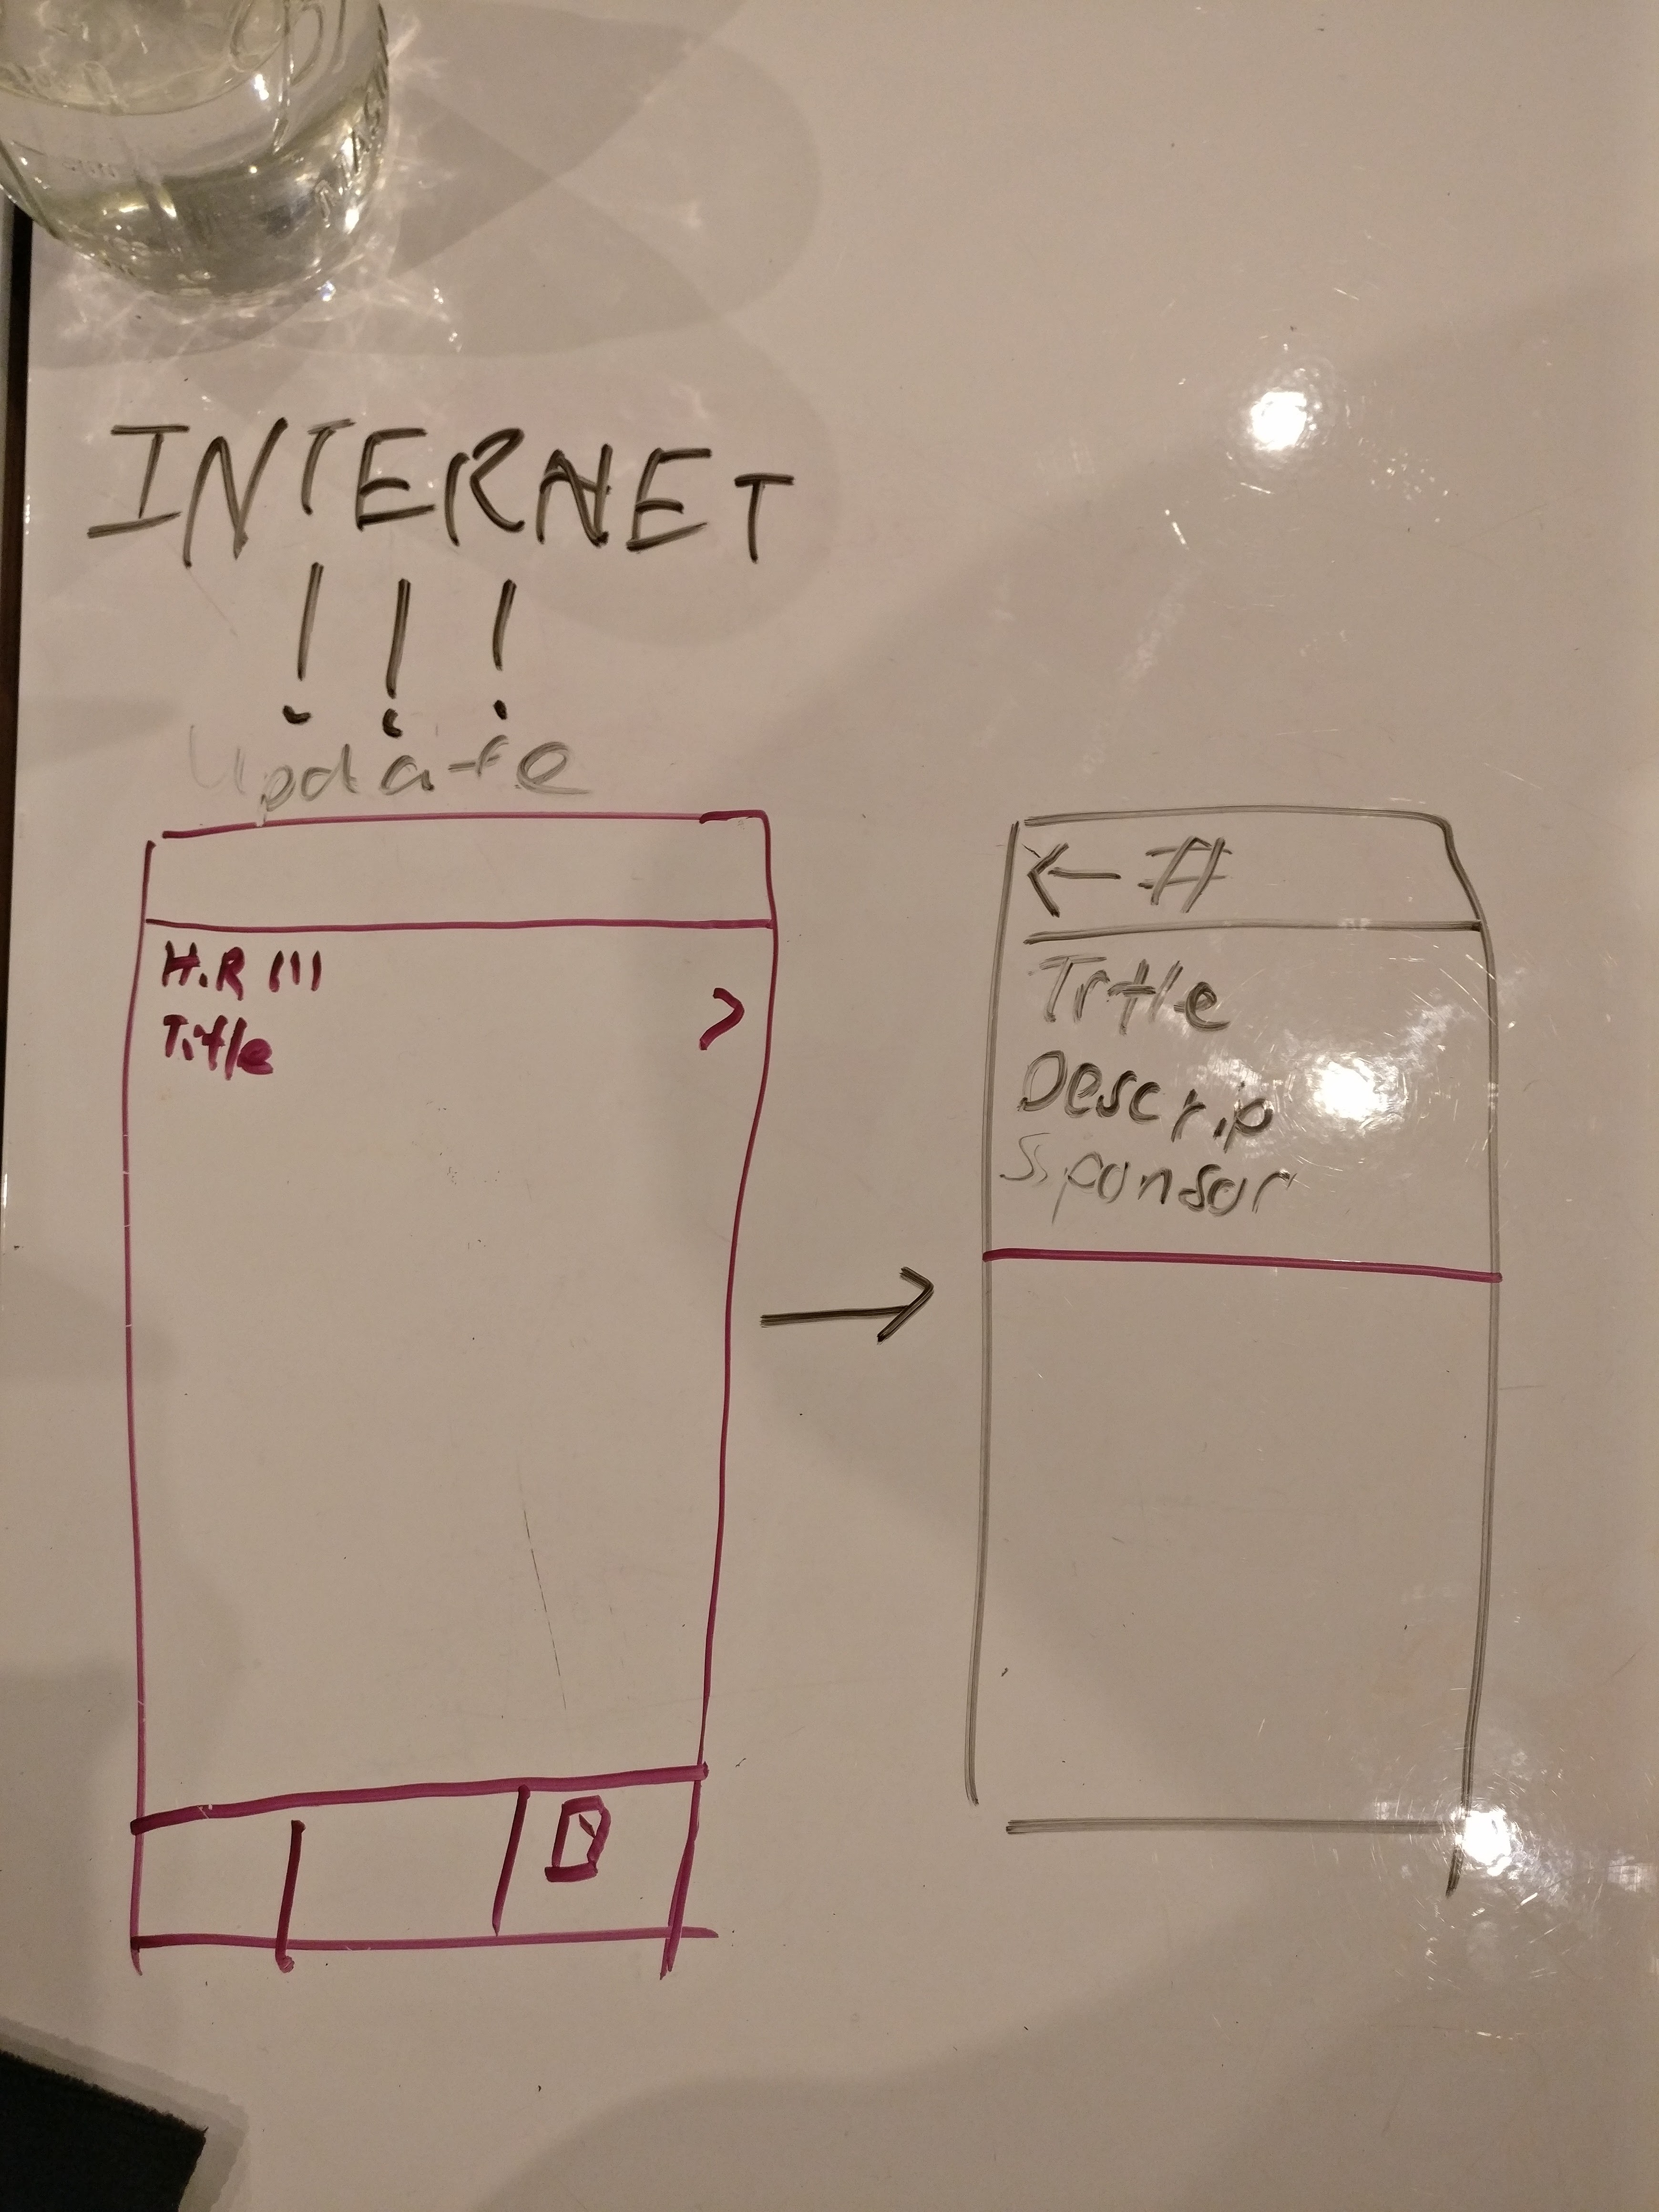 INTERNET
! ! !
Update
H.R 111
Title
>
← #
Title
Descrip
Sponsor